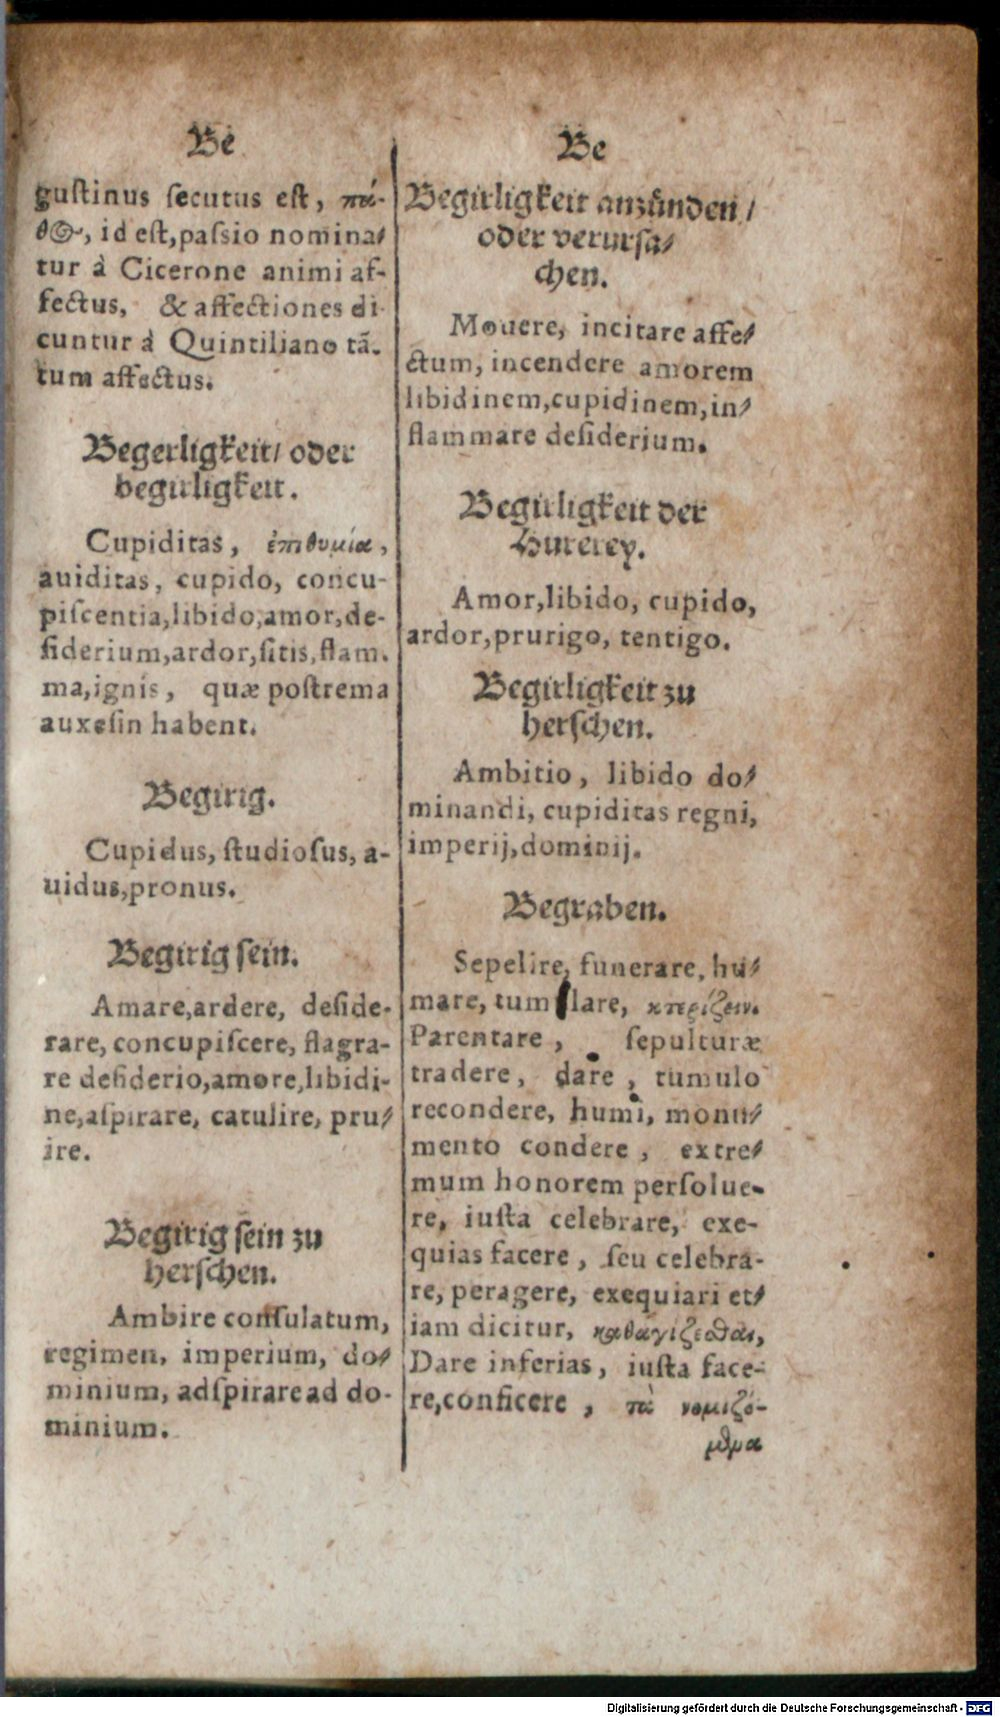 Be
guſtinus ſecutus eſt, πά-
θος, id eſt, paſsio nomina-
tur à Cicerone animi af-
fectus, & affectiones di
cuntur à Quintiliano tã-
tum affectus.
Begerligkeit/ oder
begirligkeit.
Cupiditas, ἐπιθυμία,
auiditas, cupido, concu-
piſcentia, libido, amor, de-
ſiderium, ardor, ſitis, flam-
ma, ignis, quæ poſtrema
auxeſin habent.
Begirig.
Cupidus, ſtudioſus, a-
uidus, pronus.
Begirig ſein.
Amare, ardere, deſide-
rare, concupiſcere, flagra-
re deſiderio, amore, libidi-
ne, aſpirare, catulire, pru-
ire.
Begirig ſein zu
herſchen.
Ambire conſulatum,
regimen, imperium, do-
minium, adſpirare ad do-
minium.
Be
Begirligkeit anzünden/
oder verurſa-
chen.
Mouere, incitare affe-
ctum, incendere amorem
libidinem, cupidinem, in-
flammare deſiderium.
Begirligkeit der
Hurerey.
Amor, libido, cupido,
ardor, prurigo, tentigo.
Begirligkeit zu
herſchen.
Ambitio, libido do-
minandi, cupiditas regni,
imperij, dominij.
Begraben.
Sepelire, funerare, hu-
mare, tumulare, κτερίζειν.
Parentare, ſepulturæ
tradere, dare, tumulo
recondere, humi, monu-
mento condere, extre-
mum honorem perſolue-
re, iuſta celebrare, exe-
quias facere, ſeu celebra-
re, peragere, exequiari et-
iam dicitur, καθαγίζεσθαι,
Dare inferias, iuſta face-
re, conficere, τὰ νομιζό-
μενα
Digitalisierung gefördert durch die Deutsche Forschungsgemeinschaft - DFG